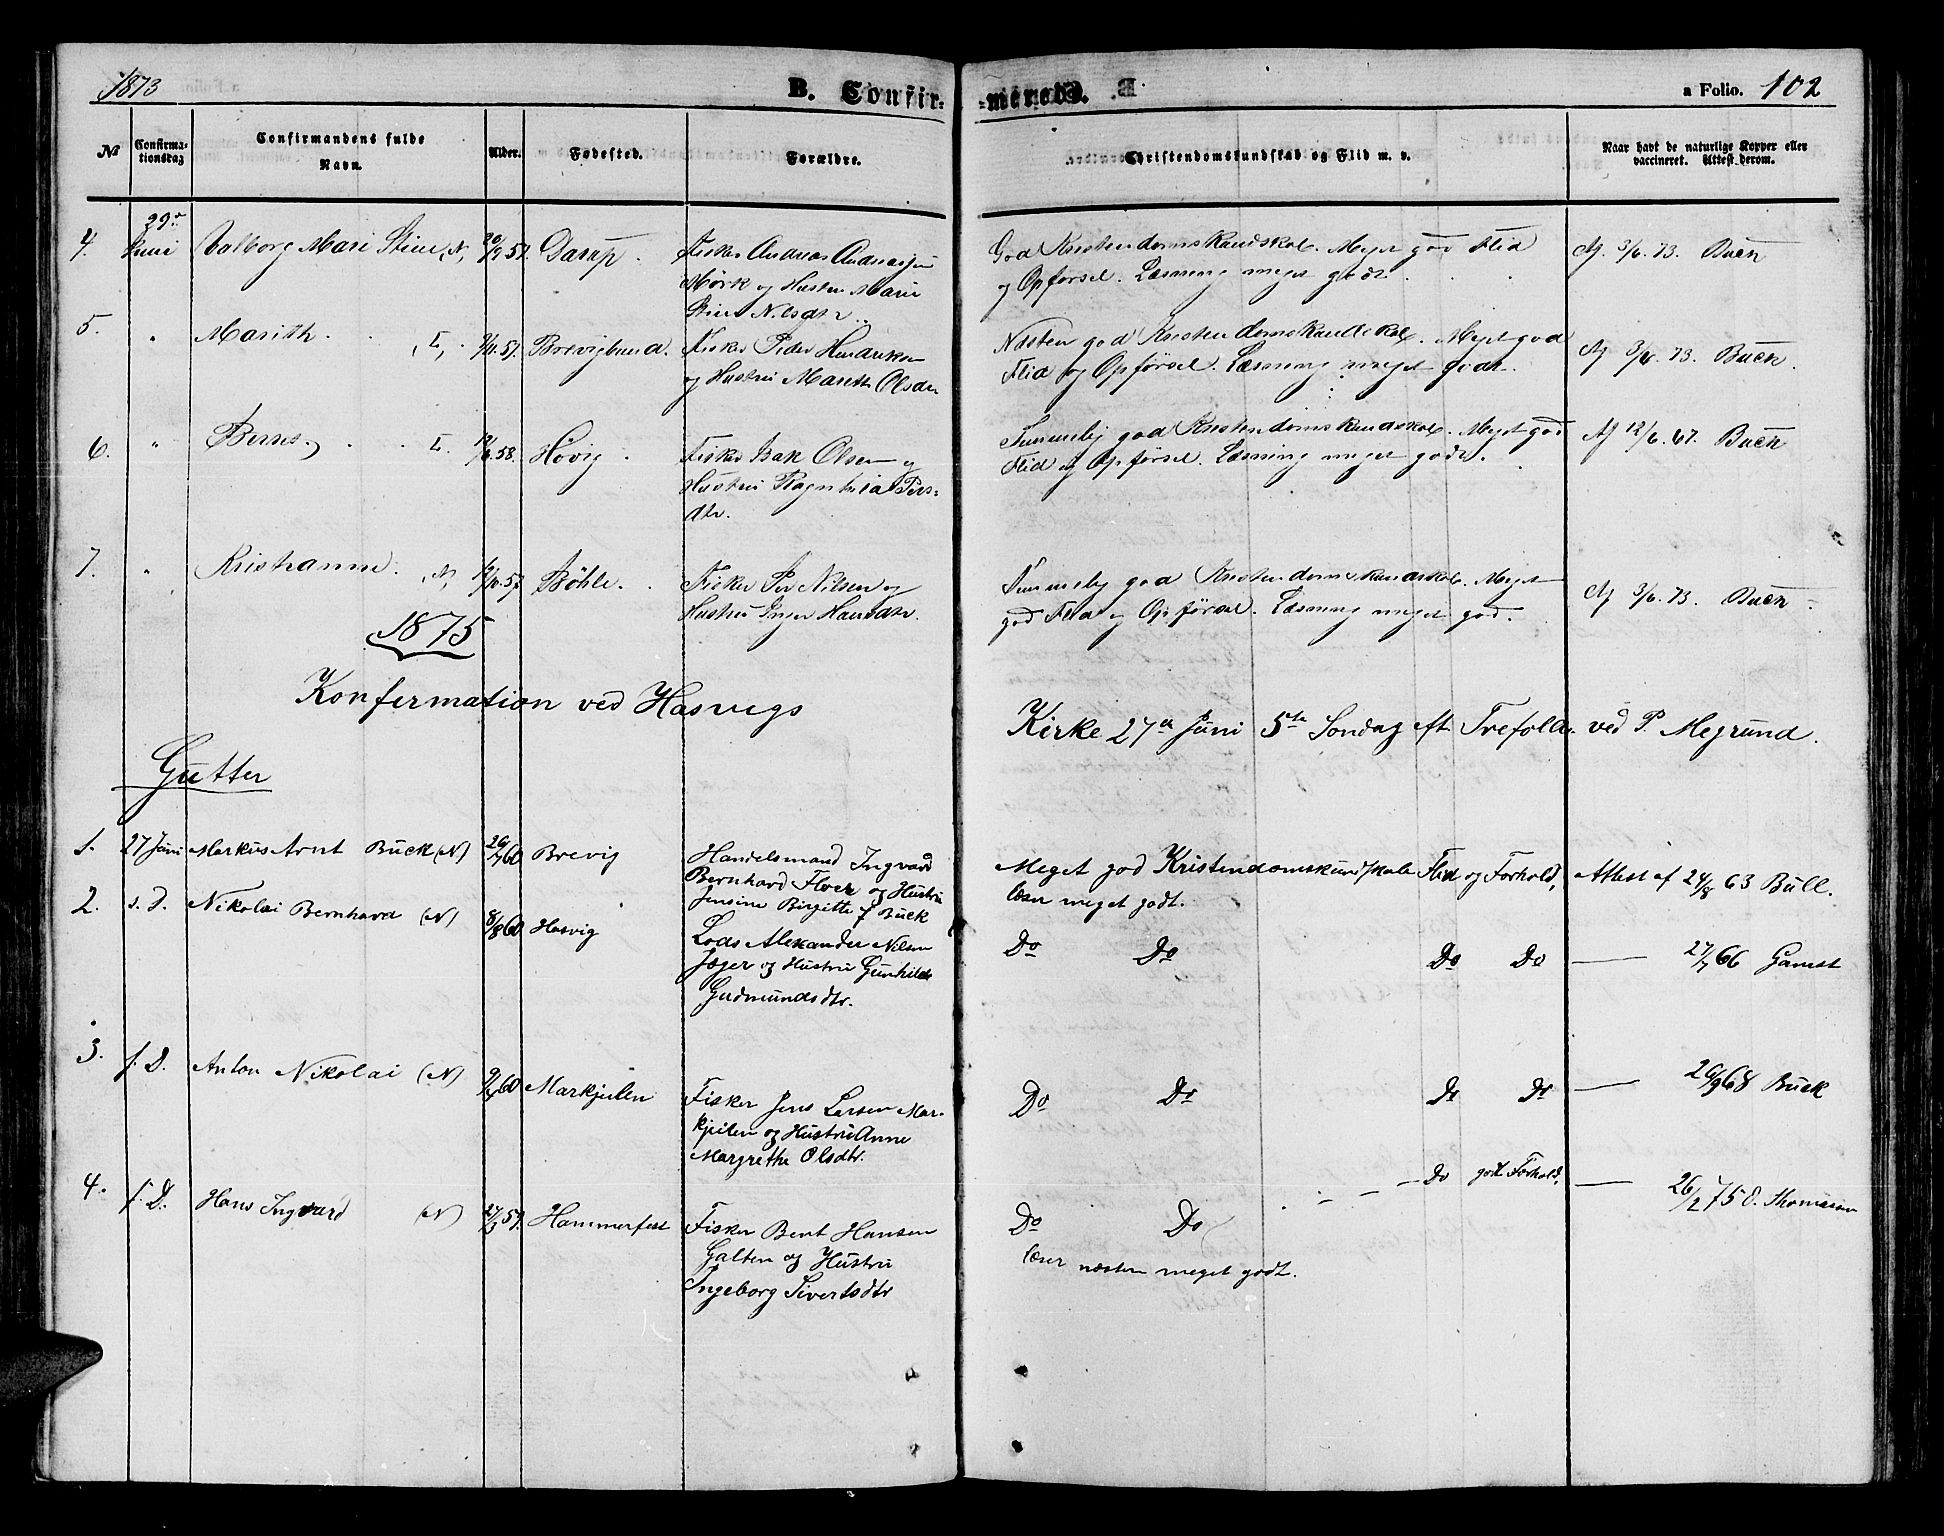 1873
B. Confir-
-merede.
a Folio. 102
No
Confirma-
tionsdag
Confirmandens fulde
Navn.
Alder.
Fødested.
Forældre.
Christendomskundskab og Flid m. v.
Naar havt de naturlige Kopper eller
vaccineret. Attest derom.
4.
29de
Juni
Valborg Mari Stine (N)
Fisker Andreas Andreassen
Mörk og Hustru Marie
Stine Nilsdtr
God Kristendomskundskab. Meget god Flid
og Opførsel. Læsning meget godt.
Af 3/6. 73. Buck
5.
"
Marith
L.
9/11.57.
Brevigbund.
Fisker Peder Hendriksen
og Hustru Marith Olsdtr
Næsten god Kristendomskundskab. Meget god
Flid og Opførsel. Læsning meget godt.
Af 3/6. 73. Buck.
6.
"
L.
Høvig
Fisker Isak Olsen og
Hustru Ragnhild Pers-
dtr.
Temmelig god Kristendomskundskab. Meget god
Flid og Opførsel. Læsning meget godt.
Af 12/6. 67. Buck
7.
"
Kristianne
(N)
Böhle.
Fisker Per Nilsen og
Hustru Inger Hansdtr.
Temmelig god Kristendomskundskab. Meget
god Flid og Opførsel. Læsning meget god.
Af 3/6. 73. Buck
1875
Konfirmation ved Hasvigs
Kirke 27de Juni 5te Søndag eft Trefoldr. ved P. Megrund.
Gutter
1.
27 Juni
Markus Arnt Buck (N)
26/7 60
Brevig
Handelsmand Ingvard
Bernhard Floer og Hustru
Jensine Birgitte f Buck
Meget god Kristendomskundskab Flid og Forhold,
læser meget godt.
Attest af 24/8 63 Bull.
2.
s. D.
Nikolai Bernhard (N)
8/8 60
Hasvig
Lods Alexander Nilsen
Jæger og Hustru Gunhild
Gudmundsdtr.
Do Do Do Do
— 27/7 66 Gamst
3.
s. D.
Anton Nikolai (N)
Markjeilen
Fisker Jens Larsen Mar-
kjeilen og Hustru Anne
Margrethe Olsdtr.
Do Do Do Do
— 26/9 68 Buck
4.
s. D.
Hans Ingvard (N)
Hammerfest
Fisker Bent Hansen
Galten og Hustru
Ingeborg Sivertsdtr
Do Do - - - - Do godt Forhold,
læser næsten meget godt.
— 26/2 75 O. Thomassen